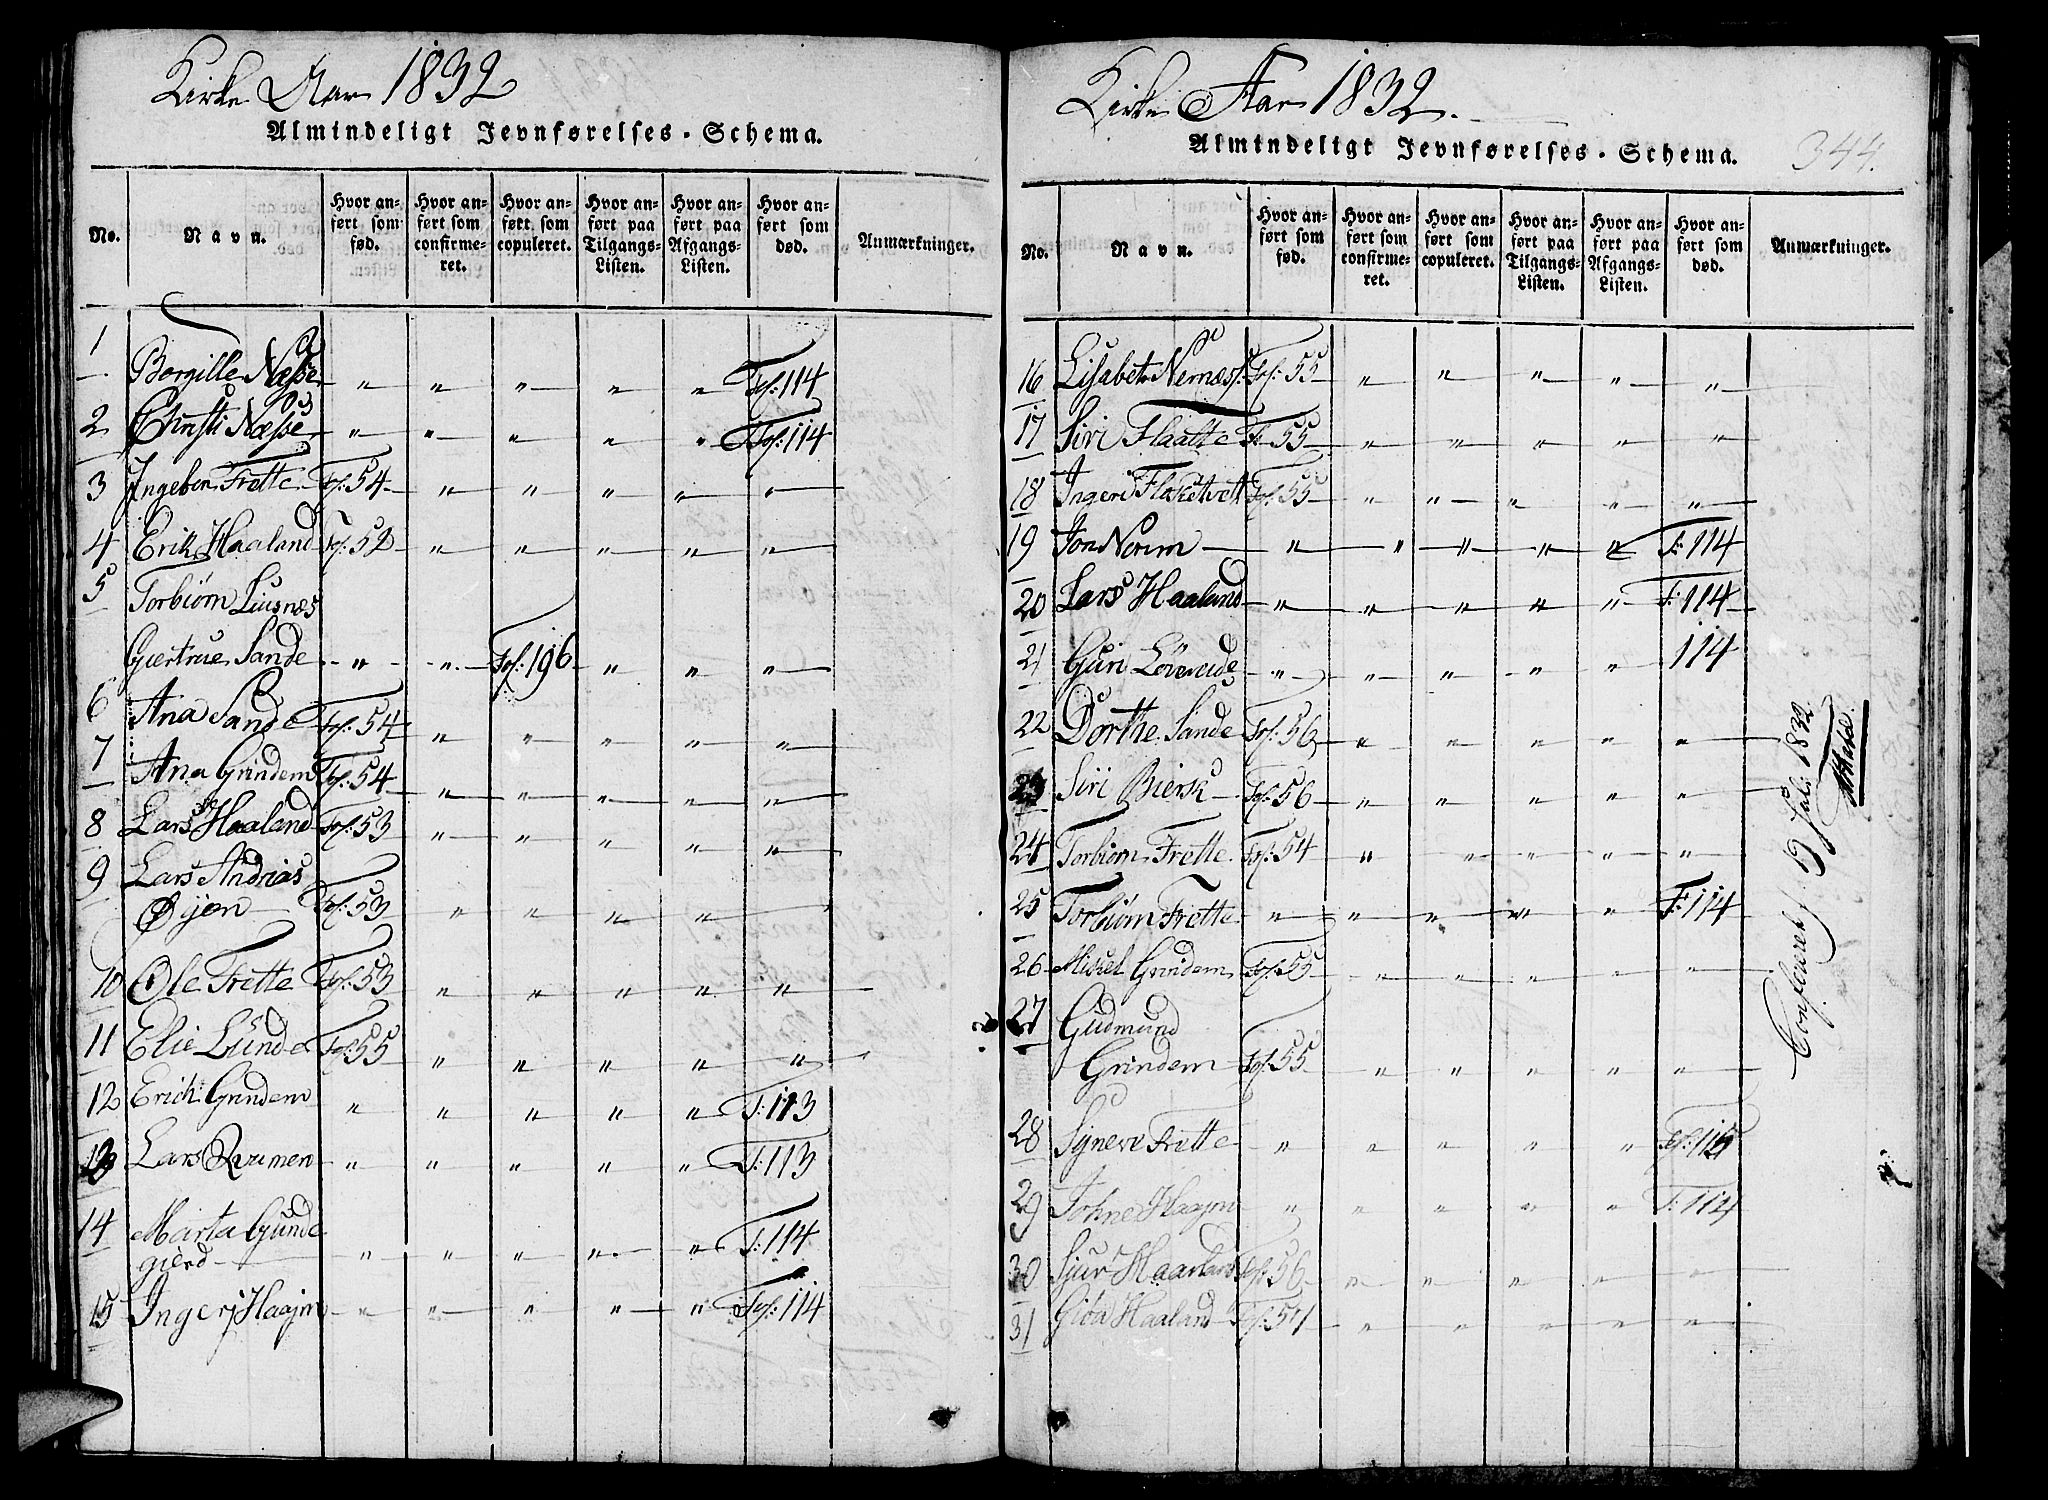 Kirke Aar 1832
Almindeligt Jevnførelses-Schema.
No.
Navn.
Hvor anført som fød.
Hvor anført som confirmeret.
Hvor anført som copuleret.
Hvor anført paa Tilgangs-Listen.
Hvor anført paa Afgangs-Listen.
Hvor anført som død.
Anmærkninger.
1 Borgille Næsse " " " " " Fol: 114
2 Christi Næsse " " " " " Fol: 114
3 Ingebor Frette Fol: 54 " " " " "
4 Erik Haaland Fol: 52 " " " " "
5 Torbiørn Liusnæs
Giertrue Sande " " Fol: 196 " " "
6 Ana Sande Fol: 54 " " " " "
7 Ana Grindem Fol: 54 " " " " "
8 Lars Haaland Fol: 53 " " " " "
9 Lars Andrias
Øijen Fol: 53 " " " " "
10 Ole Frette Fol: 53 " " " " "
11 Elie Lunde Fol: 55 " " " " "
12 Erick Grindem " " " " " F: 113
13 Lars " " " " " F: 113
14 Marta Gunde
gierd " " " " " F: 114
15 Ingerj Haajm " " " " " Fol: 114
Kirke Aar 1832.
Almindeligt Jevnførelses-Schema.
344.
No.
Navn.
Hvor anført som fød.
Hvor anført som confirmeret.
Hvor anført som copuleret.
Hvor anført paa Tilgangs-Listen.
Hvor anført paa Afgangs-Listen.
Hvor anført som død.
Anmærkninger.
16 Lisabet Nernæss Fol: 55 " " " " "
17 Siri Flaatte F: 55 " " " " "
18 Ingeri Fol: 55 " " " " "
19 Jon Nerim " " " " " F: 114
20 Lars Haaland " " " " " F: 114
21 Guri " " " " " 114
22 Dorthe Sande Fol: 56 " " " " "
23 Siri Biersk Fol: 56 " " " " "
24 Torbiørn Frette Fol: 54 " " " " "
25 Torbiørn Frette " " " " " F: 114
26 Mikel Grindem Fol: 55 " " " " "
27 Gudmund
Grindem Fol: 55 " " " " "
28 Syneve Frette " " " " " Fol: 115
29 Johne Haajm " " " " " F: 114
30 Sjur Haarland Fol: 56 " " " " "
31 Giøa Haaland Fol: 54 " " " " "
Confereret 19 Juli 1832